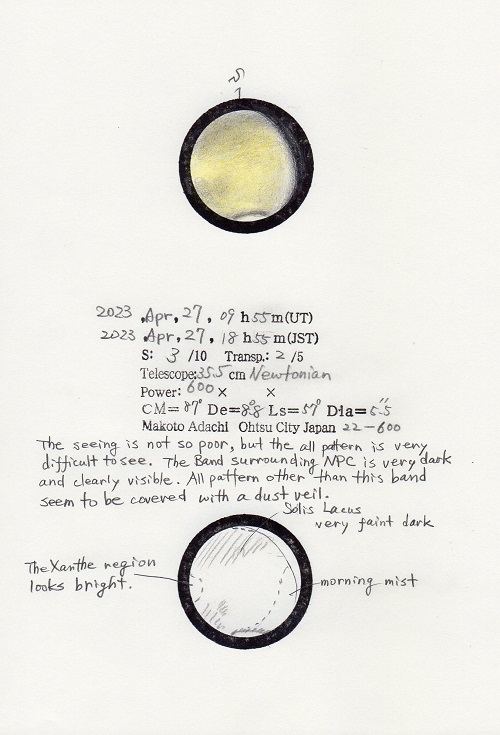 2023 ,Apr, 27, 09 h 55 m (UT)
2023 ,Apr, 27, 18 h 55 m (JST)
S: 3 /10 Transp.: 2 /5
Telescope: 35.5 cm Newtonian
Power: 600 × ×
CM= 87° De= 8.°8 Ls= 57° Dia= 5.″5
Makoto Adachi Ohtsu City Japan 22-600
The seeing is not so poor, but the all pattern is very
difficult to see. The Band surrounding NPC is very dark
and clearly visible. All pattern other than this band
seem to be covered with a dust veil.
Solis Lacus
very faint dark
The Xanthe region
looks bright.
morning mist